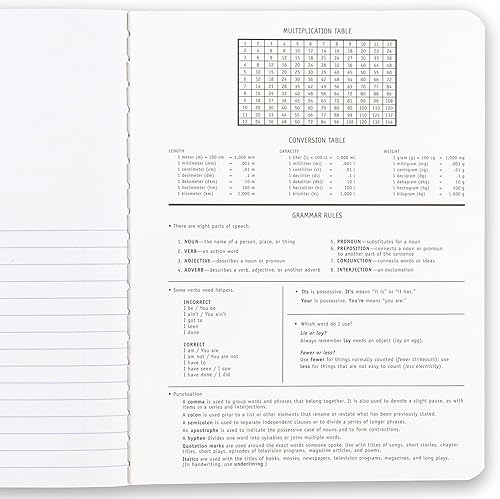 MULTIPLICATION TABLE
1 2 3 4 5 6 7 8 9 10 11 12
2 4 6 8 10 12 14 16 18 20 22 24
3 6 9 12 15 18 21 24 27 30 33 36
4 8 12 16 20 24 28 32 36 40 44 48
5 10 15 20 25 30 35 40 45 50 55 60
6 12 18 24 30 36 42 48 54 60 66 72
7 14 21 28 35 42 49 56 63 70 77 84
8 16 24 32 40 48 56 64 72 80 88 96
9 18 27 36 45 54 63 72 81 90 99 108
10 20 30 40 50 60 70 80 90 100 110 120
11 22 33 44 55 66 77 88 99 110 121 132
12 24 36 48 60 72 84 96 108 120 132 144
CONVERSION TABLE
LENGTH
1 meter (m) = 100 cm = 1,000 mm
1 millimeter (mm) = .001 m
1 centimeter (cm) = .01 m
1 decimeter (dm) = .1 m
1 dekameter (dem) = 10 m
1 hectometer (hm) = 100 m
1 kilometer (km) = 1,000 m
CAPACITY
1 liter (l) = 100 cl = 1,000 ml
1 milliliter (ml) = .001 l
1 centiliter (cl) = .01 l
1 deciliter (dl) = .1 l
1 dekaliter (del) = 10 l
1 hectoliter (hl) = 100 l
1 kiloliter (kl) = 1,000 l
WEIGHT
1 gram (g) = 100 cg = 1,000 mg
1 milligram (mg) = .001 g
1 centigram (cg) = .01 g
1 decigram (dg) = .1 g
1 dekagram (dkg) = 10 g
1 hectogram (hg) = 100 g
1 kilogram (kg) = 1,000 g
GRAMMAR RULES
• There are eight parts of speech.
1. NOUN—the name of a person, place, or thing
2. VERB—an action word
3. ADJECTIVE—describes a noun or pronoun
4. ADVERB—describes a verb, adjective, or another adverb
5. PRONOUN—substitutes for a noun
6. PREPOSITION—connects a noun or pronoun
to another part of the sentence
7. CONJUNCTION—connects words or ideas
8. INTERJECTION—an exclamation
• Some verbs need helpers.
INCORRECT
I be / You be
I ain't / You ain't
I got to
I seen
I done
CORRECT
I am / You are
I am not / You are not
I have to
I have seen / I saw
I have done / I did
• Its is possessive. It's means "it is" or "it has."
Your is possessive. You're means "you are."
• Which word do I use?
Lie or lay?
Always remember lay needs an object (lay an egg).
Fewer or less?
Use fewer for things normally counted (fewer strikeouts); use
less for things that are not easy to count (less electricity).
• Punctuation
A comma is used to group words and phrases that belong together. It is also used to denote a slight pause, as with
items in a series and interjections.
A colon is used prior to a list or other elements that rename or restate what has been previously stated.
A semicolon is used to separate independent clauses or to divide a series of longer phrases.
An apostrophe is used to indicate the possessive case of nouns and to form contractions.
A hyphen divides one word into syllables or joins multiple words.
Quotation marks are used around the exact words someone spoke. Use with titles of songs, short stories, chapter
titles, short plays, episodes of television programs, magazine articles, and poems.
Italics are used with the titles of books, movies, newspapers, television programs, magazines, and long plays.
(In handwriting, use underlining.)